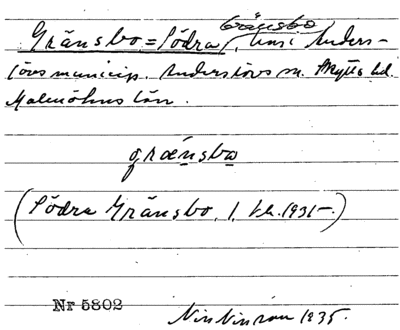 Gränsbo = Södra Gränsbo, hus i Anders-
lövs municip. Anderslövs sn. Skytts hd.
Malmöhus län.
græ̀nsbo
(Södra Gränsbo, 1, kh. 1931-.)
Nr 5802
1935.